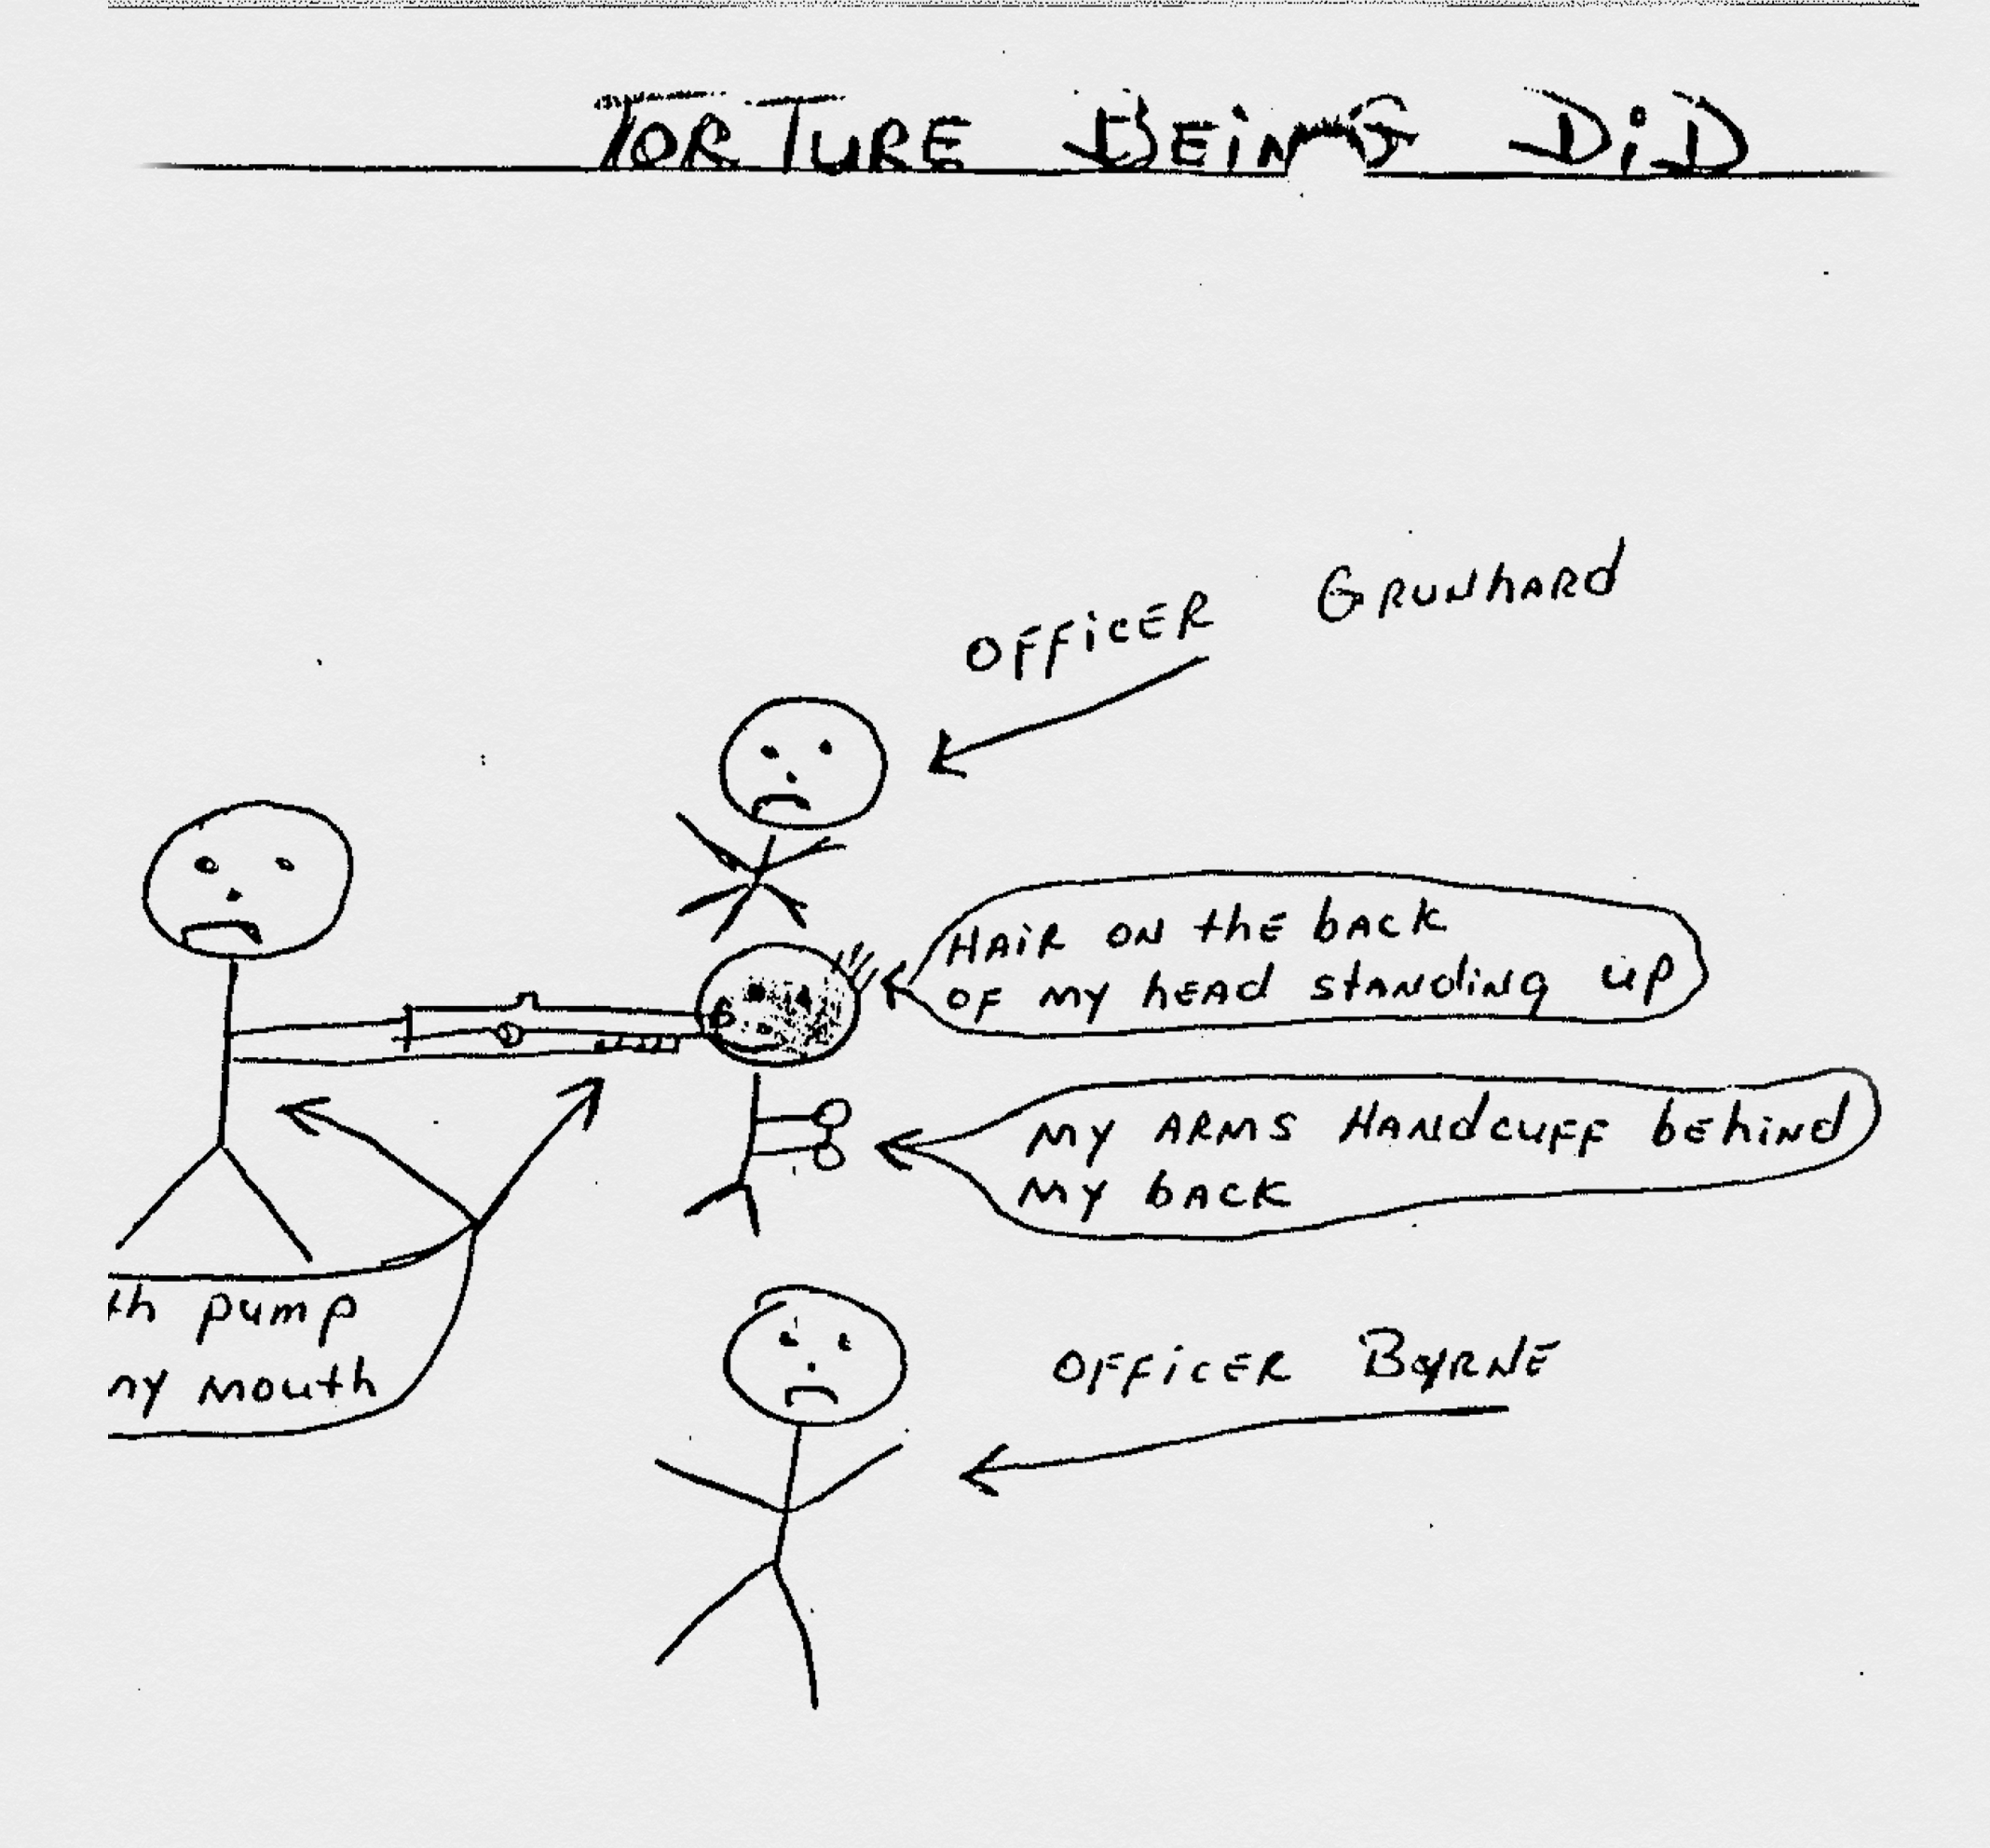 TORTURE BEING DID
OFFICER GRUNHARD
HAIR ON the back
OF MY hEAd stANdiNg up
MY ARMS HANdcuFF behiNd
MY bACK
pump
mouth
OFFICER BYRNE